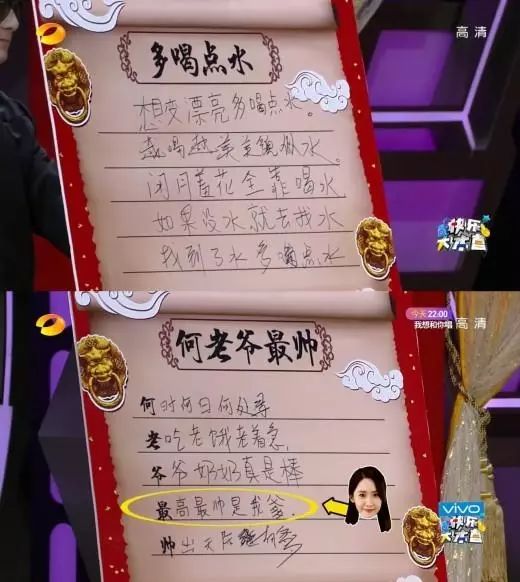 高清
多喝点水
想变漂亮多喝点水。
越喝越美美貌似水。
闭月羞花全靠喝水
如果没水就去找水
找到了水多喝点水
快乐大本营
今天 22:00
我想和你唱 高清
何老爷最帅
何时何日何处寻
老吃老饿老着急,
爷爷奶奶真是棒
最高最帅是我爹
帅出天际
vivo
快乐大本营